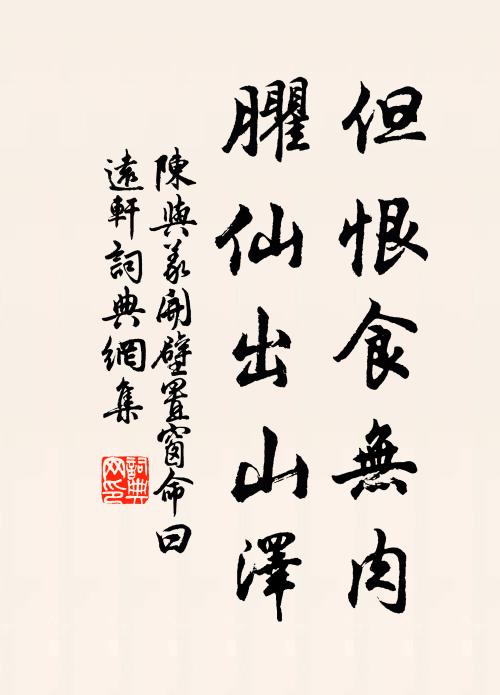 但恨食無肉
臞仙出山澤
陳與義開壁置窗命曰
遠軒詞典網集
詞典
网印